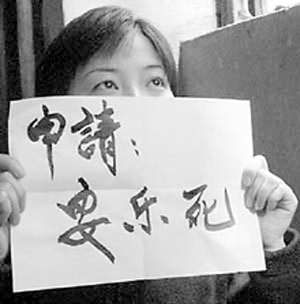 申請：
要乐死